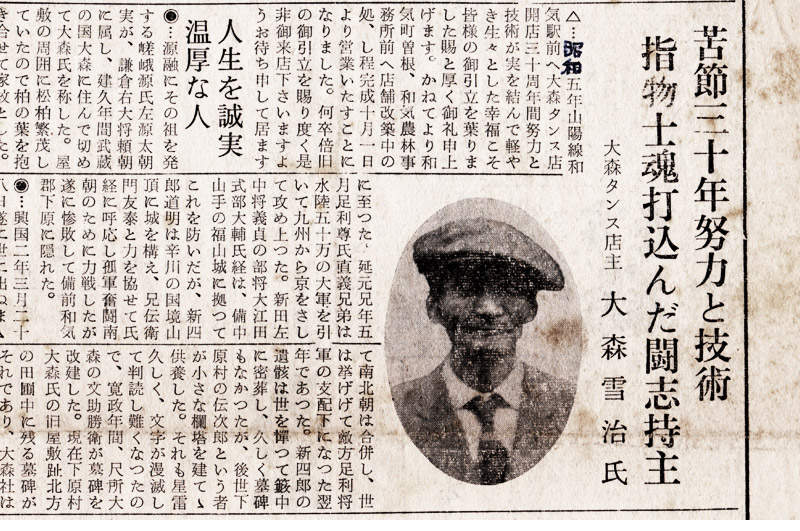 苦節三十年努力と技術
指物士魂打込んだ闘志持主
大森タンス店主 大森雪治氏
△…昭和五年山陽線和
気駅前へ大森タンス店
開店三十周年間努力と
技術が実を結んで軽や
き生々とした幸福こそ
皆様の御引立を葉りま
した賜と厚く御礼申上
げます。かねてより和
気町曽根、和気農林事
務所前へ店舗改築中の
処、し程完成十月一日
より営業いたすことに
なりました。何卒倍旧
の御引立を賜り度く是
非御来店下さいますよ
うお待ち申して居ます
人生を誠実
温厚な人
●…源融にその祖を発
する嵯峨源氏左源太朝
実が、鎌倉右大将頼朝
に属し、建久年間武蔵
の国大森に住んで切め
て大森氏を称した。屋
敷の周囲に松柏繁茂し
ていたので柏の葉を抱
き合せて家紋とした。
に至つた。延元兄年五
月足利尊氏直義兄弟は
水陸五十万の大軍を引
いて九州から京をさし
て攻め上つた。新田左
中将義貞の部将大江田
式部大輔氏経は、備中
山手の福山城に拠つて
これを防いだが、新四
郎道明は辛川の国境山
頂に城を構え、兄伝衛
門友泰と力を協せて氏
経に呼応し孤軍奮闘南
朝のために力戦したが
遂に惨敗して備前和気
郡下原に隠れた。
●…興国二年三月二十
て南北朝は合併し、世
は挙げて敵方足利将
軍の支配下になつた翌
年であつた。新四郎の
遺骸は世を憚つて籔中
に密葬し、久しく墓碑
もなかつたが、後世下
原村の伝次郎という者
が小さな欄塔を建てゝ
供養した。それも星霜
久しく、文字が漫滅し
て判読し難くなつたの
で、寛政年間、尺所大
森の文助勝衛が墓碑を
改建した。現在下原村
大森氏の旧屋敷趾北方
の田圃中に残る墓碑が
それであり、大森社は